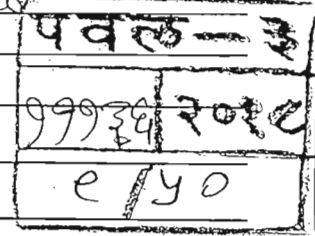 पवल - ३
१११३६ २०१८
९/५०